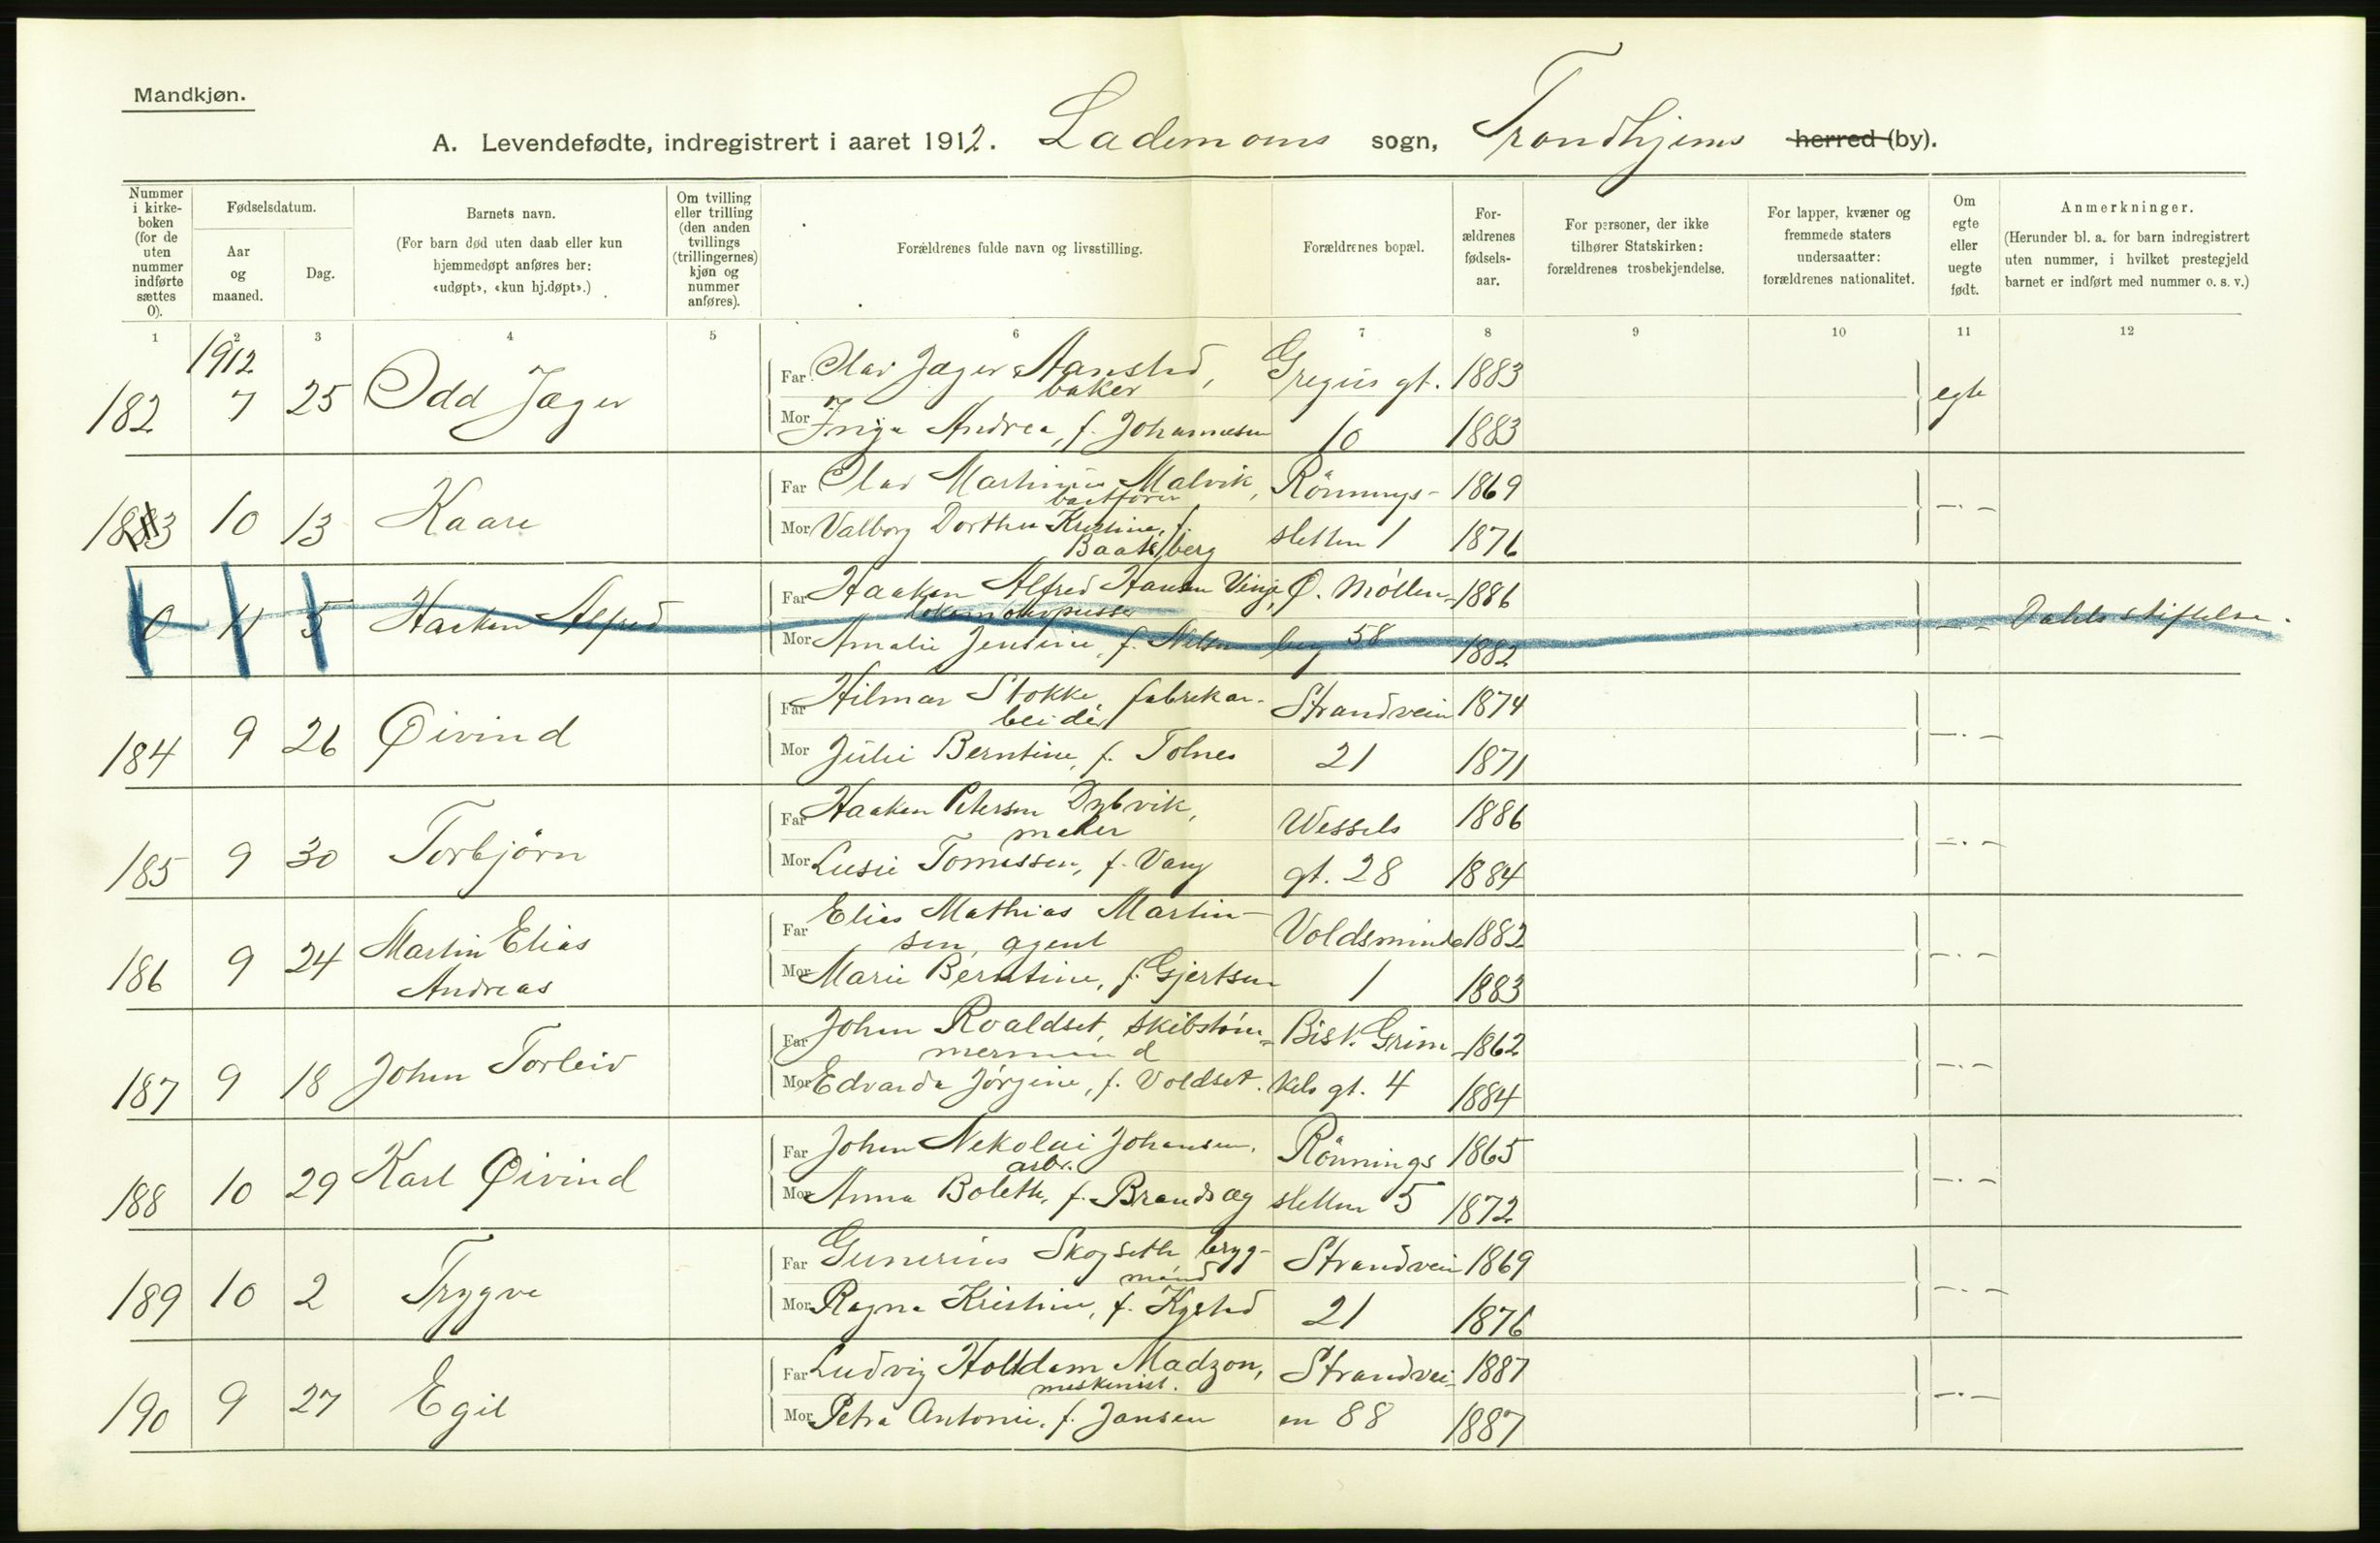 Mandkjøn.
A. Levendefødte, indregistrert i aaret 1912. Lademoens sogn, Trondhjems herred (by).
Nummer i kirke-boken (for de uten nummer indførte sættes 0).
Fødselsdatum.
Aar og maaned.
Dag.
Barnets navn.
(For barn død uten daab eller kun hjemmedøpt anføres her: «udøpt», «kun hj.døpt».)
Om tvilling eller trilling (den anden tvillings (trillingernes) kjøn og nummer anføres).
Forældrenes fulde navn og livsstilling.
Forældrenes bopæl.
For-ældrenes fødsels-aar.
For personer, der ikke tilhører Statskirken: forældrenes trosbekjendelse.
For lapper, kvæner og fremmede staters undersaatter: forældrenes nationalitet.
Om egte eller uegte født.
Anmerkninger.
(Herunder bl. a. for barn indregistrert uten nummer, i hvilket prestegjeld barnet er indført med nummer o. s. v.)
1 2 3 4 5 6 7 8 9 10 11 12
1912
182 7 25 Odd Jæger
Far Olav Jæger Aansted, Gregus gt. 1883
baker
Mor Inga Andrea, f. Johannesen 10 1883
egte
183 10 13 Kaare
Far Olav Martinus Malvik, Rönnings- 1869
baatfører
Mor Valborg Dorthea Kristine, f. sletten 1 1876
Baatsberg
—.—
0 11 5 Haakon Alfred
Far Haakon Alfred Hansen Vinje, Ø. Møllen- 1886
lokomotivpusser
Mor Amalie Jensine, f. Nelsen berg 58 1882
— — Dahls stiftelse.
184 9 26 Øivind
Far Hilmar Stokke, fabrikar- Strandvein 1874
beider
Mor Julie Berntine, f. Tolnes 21 1871
—.—
185 9 30 Torbjörn
Far Haakon Petersen Dybvik, Wessels 1886
maler
Mor Lusie Tomessen, f. Vang gt. 28 1884
—.—
186 9 24 Martin Elias Andreas
Far Elias Mathias Martin- Voldsminde 1882
sen, agent
Mor Marie Berntine, f. Gjertsen 1 1883
—.—
187 9 18 Johan Torleiv
Far Johan Roaldset, skibstöm- Bisk. Grim- 1862
mermand
Mor Edvarda Jørgine, f. Voldset. kels gt. 4 1884
—.—
188 10 29 Karl Øivind
Far Johan Nekolai Johansen, Rönnings 1865
arbr.
Mor Anna Bolette, f. Brandsæg sletten 5 1872
—.—
189 10 2 Trygve
Far Gunerius Skogseth, bryg- Strandvein 1869
mand
Mor Ragna Kristine, f. Kysted 21 1876
—.—
190 9 27 Egil
Far Ludvig Holtdam Madzon, Strandvei- 1887
maskinist.
Mor Petra Antonie, f. Jansen en 88 1887
—.—